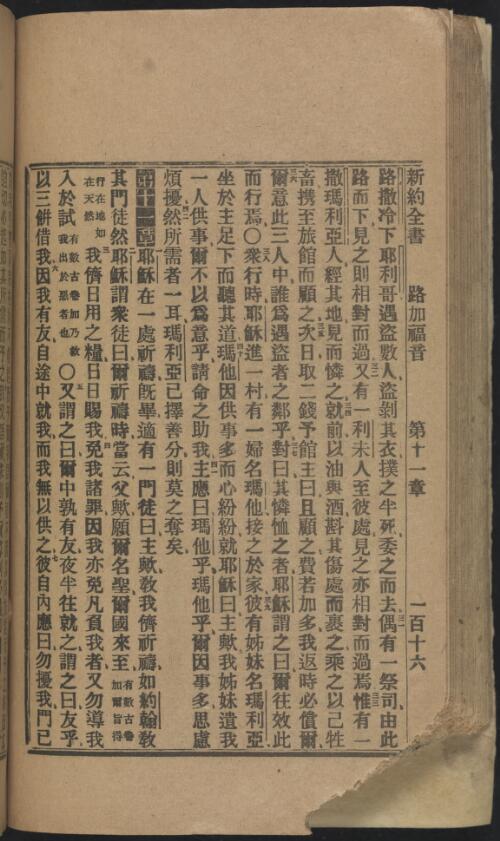 新約全書 路加福音 第十一章 一百十六
路撒冷下耶利哥遇盜數人盜剝其衣撲之半死委之而去偶有一祭司由此
路而下見之則相對而過又有一利未人至彼處見之亦相對而過焉惟有一
撒瑪利亞人經其地見而憐之就前以油與酒斟其傷處而裹之乘之以己牲
畜携至旅館而顧之次日取二錢予館主曰且顧之費若加多我返時必償爾
爾意此三人中誰爲遇盜者之鄰乎對曰其憐恤之者耶穌謂之曰爾往效此
而行焉〇衆行時耶穌進一村有一婦名瑪他接之於家彼有姊妹名瑪利亞
坐於主足下而聽其道瑪他因供事多而心紛紛就耶穌曰主歟我姊妹遺我
一人供事爾不以爲意乎請命之助我主應曰瑪他乎瑪他乎爾因事多思慮
煩擾然所需者一耳瑪利亞已擇善分則莫之奪矣
第十一章耶穌在一處祈禱旣畢適有一門徒曰主歟敎我儕祈禱如約翰敎
其門徒然耶穌謂衆徒曰爾祈禱時當云父歟願爾名聖爾國來至有數古卷加爾旨得
行在地如在天然我儕日用之糧日日賜我免我諸罪因我亦免凡負我者又勿導我
入於試有數古卷加乃救我出於惡者也〇又謂之曰爾中孰有友夜半往就之謂之曰友乎
以三餅借我因我有友自途中就我而我無以供之彼自內應曰勿擾我門已